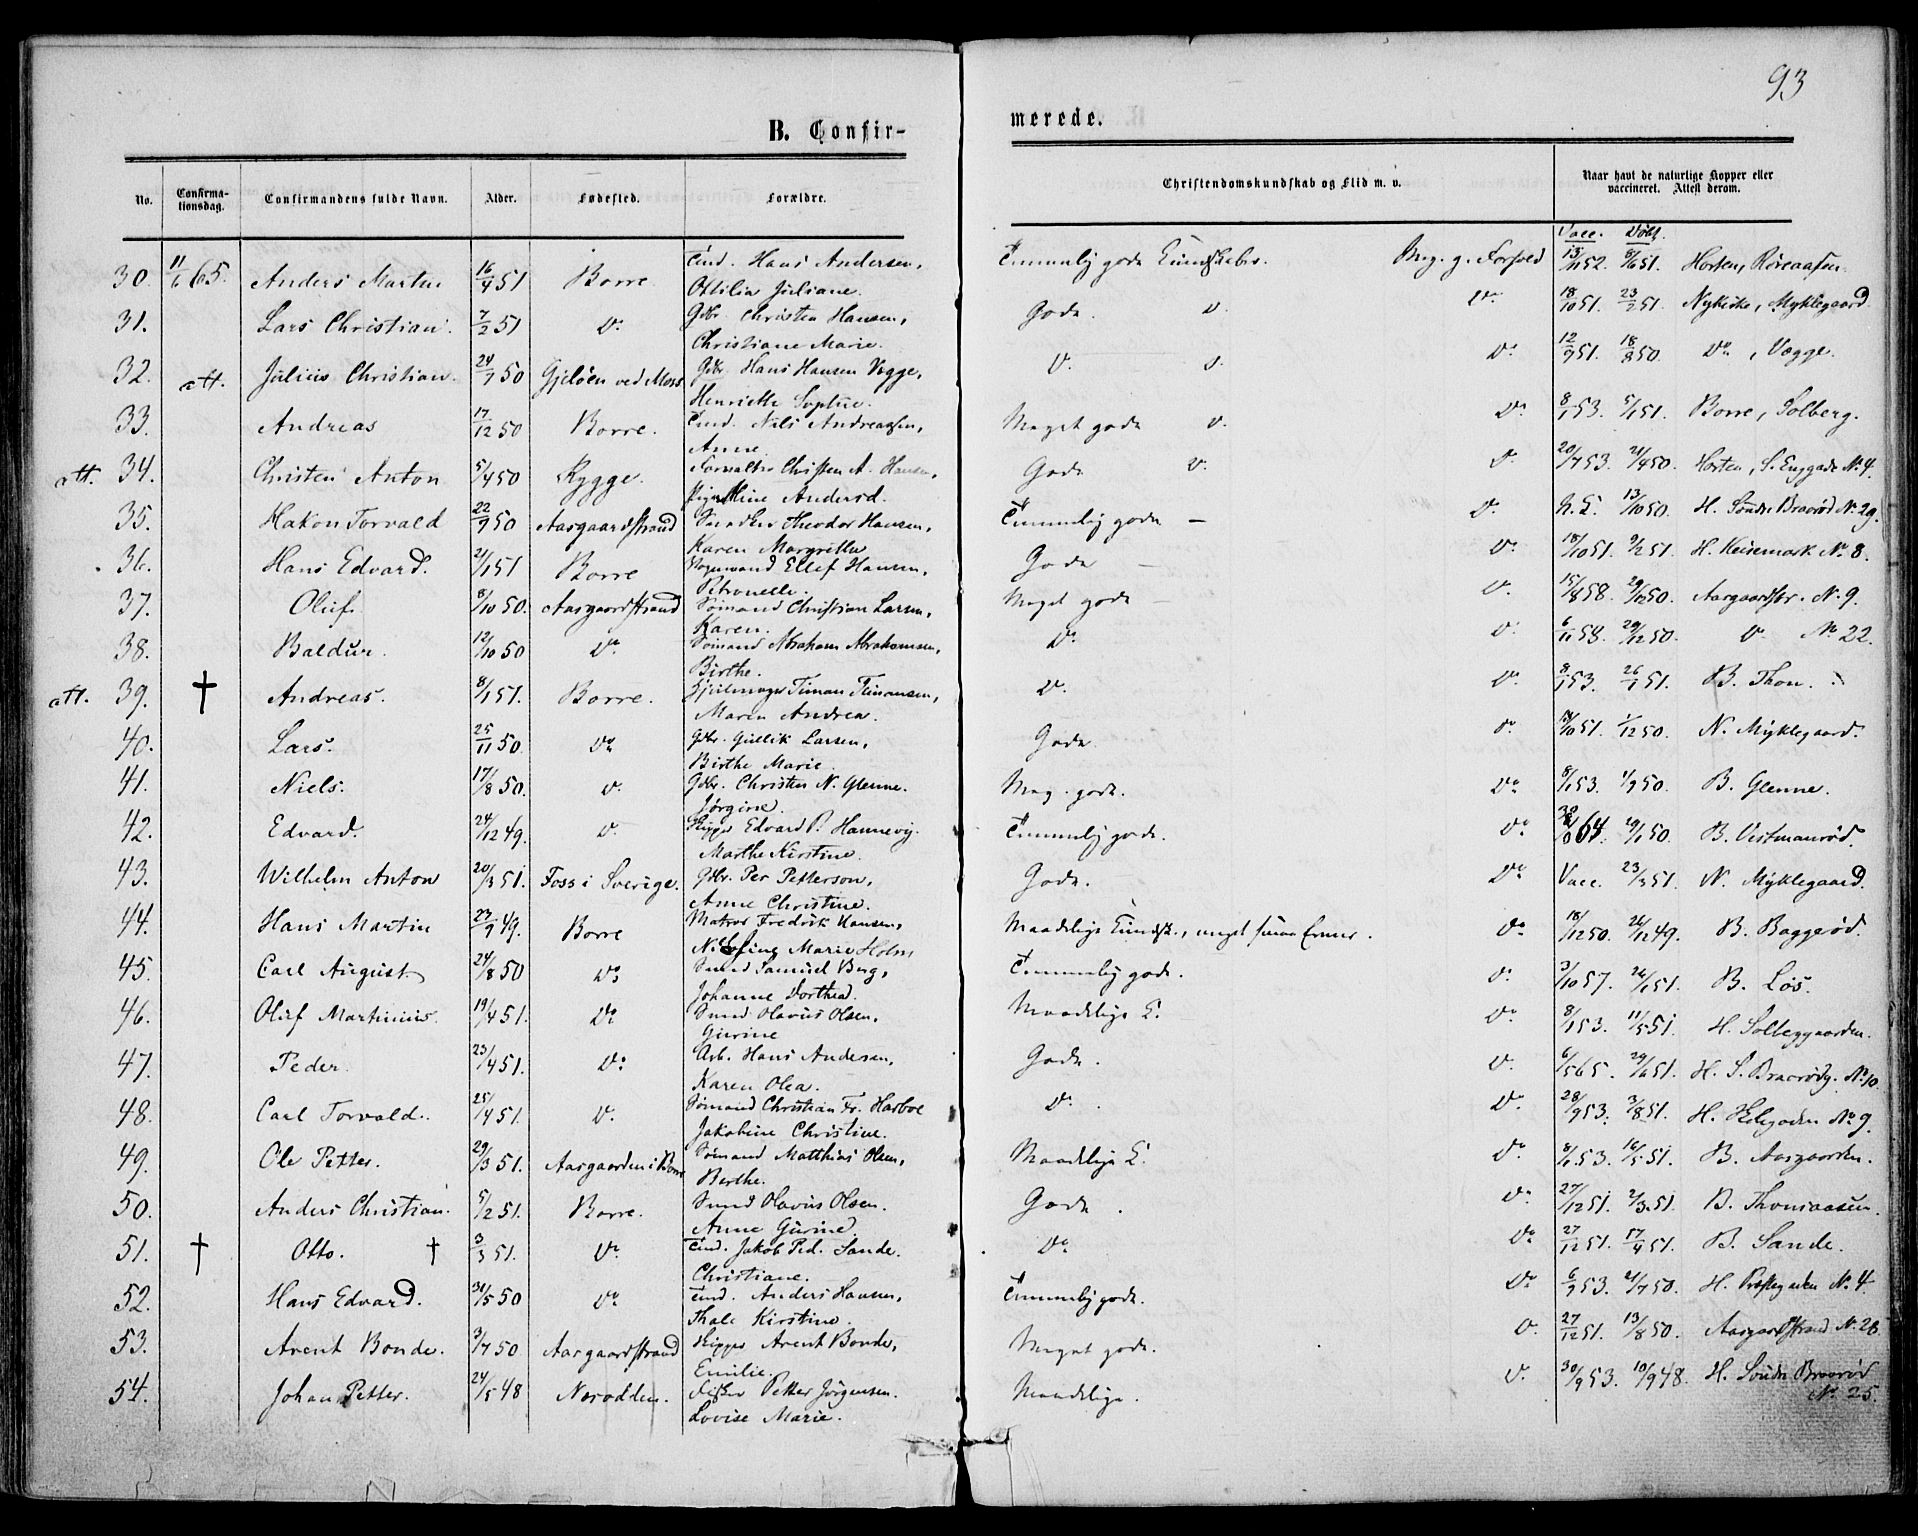 93
B. Confir-
merede.
No. Confirma-tionsdag. Confirmandens fulde Navn. Alder. Fødested. Forældre. Christendomskundskab og Flid m. v. Naar havt de naturlige Kopper eller vaccineret. Attest derom.
Vacc. Døbt.
30. 11/6 65. Anders Martin 16/4 51 Borre. Tind. Hans Andersen, Temmelig gode Kundskaber. Meg. g. Forhold 13/11 52. 8/6 51. Horten,
Ottilia Juliane.
31. Lars Christian. 7/2 51 Do Gdbr. Christen Hansen, Gode. D. Do 18/10 51. 23/2 51. Nykirke, Myklegaard.
Christiane Marie.
32. att. Julius Christian. 24/7 50 Gjelöen ved Moss Gdbr. Hans Hansen Vegge, D. D. Do 12/9 51. 18/8 50. Do, Vegge.
Henriette Sophie.
33. Andreas 17/12 50 Borre. Tind. Nils Andreassen, Meget gode D. Do 8/1 53. 5/1 51. Borre, Solberg.
Anne
att. 34. Christen Anton 5/4 50 Rygge. Forvalter Christen A. Hansen, Gode D. D. 20/7 53. 21/4 50. Horten, S. Enggade No. 4.
Andersd.
35. Hakon Torvald 22/9 50 Aasgaardstrand Theodor Hansen, Temmelig gode — D. n. K. 13/10 50. H. Søndre Braarød No. 29.
Karen Margrethe
36. Hans Edvard. 21/1 51 Borre Ellef Hansen, Gode — D. 18/10 51. 9/2 51. H. Keisemark No. 8.
Petronelle.
37. Oluf. 8/10 50. Aasgaardstrand Sømand Christian Larsen, Meget gode — D. 15/8 58. 29/10 50. Aasgaardstr. No. 9.
Karen.
38. Baldur. 12/10 50 Do Sømand Abraham Abrahamsen, Do D. 6/11 58. 29/12 50. D. No. 22.
Birthe.
att. 39. † Andreas. 8/1 51. Borre. Timan Timansen, D. Do 8/1 53. 26/1 51. B. Thon.
Maren Andrea.
40. Lars. 25/11 50. Do Gdbr. Gullik Larsen, Gode. Do 14/10 51. 1/12 50. N. Myklegaard.
Birthe Marie.
41. Niels. 17/8 50. D. Gdbr. Christen N. Glenne. Meg. gode. Do 8/1 53. 1/9 50. B. Glenne.
Jørgine.
42. Edvard. 24/12 49. D. Skipper Edvard P. Hannevig. Temmelig gode. Do 64. 29/1 50. B. Vestmanrød.
Marthe Kirstine.
43. Wilhelm Anton 20/3 51. Foss i Sverige. Gdbr. Per Petterson, Gode. Do Vacc. 23/3 51. N. Myklegaard.
Anne Christine.
44. Hans Martin 23/9 49. Borre Matros Fredrik Hansen, Maadelige Kundsk., meget smaa Evner. Do 18/12 50. 26/12 49. B. Baggerød.
Marie Holm
45. Carl August 24/8 50 Do Smed Samuel Berg, Temmelig gode. D. 3/10 57. 26/1 51. B. Løs.
Johanne Dorthea.
46. Oluf Martinius. 19/4 51. Do Smed Olavus Olsen, Maadelige K. Do 8/1 53. 11/5 51. H. Solbeggaarden.
Gurine
47. Peder. 23/4 51. Do Arb. Hans Andersen, Gode. D. 6/5 65. 29/6 51. H. S. Braarødg. No. 10
Karen Olea.
48. Carl Torvald. 25/4 51. D. Sømand Christian Fr. Harboe Do. Do 28/9 53. 3/8 51. H. No. 9.
Jakobine Christine.
49. Ole Petter. 29/3 51. Aasgaarden i Borre Sømand Matthias Olsen, Maadelige K. Do 8/1 53. 16/5 51. B. Aasgaarden.
Berthe.
50. Anders Christian. 5/2 51. Borre. Smed Olavus Olsen. Gode. Do 27/12 51. 2/3 51. B. Thoniaasen.
Anne Gurine.
51. † Otto. † 3/3 51. Do Tind. Jakob Ped. Sande. Do Do 27/12 51. 17/4 51. B. Sande.
Christiane.
52. Hans Edvard. 31/5 50 Do Tind. Anders Hansen, Temmelig gode. Do 6/9 53. 21/7 50. H. Præstegaden No. 4
Thale Kirstine.
53. Arent Bonde. 3/7 50 Aasgaardstrand Skipper Arent Bonde, Meget gode. D. 27/12 51. 13/8 50. Aasgaardstrand No. 28
Emilie.
54. Johan Petter. 24/5 48 Næsodden. Fisker Petter Jørgensen. Maadelige. D. 30/9 53. 10/9 48. H. Søndre Braarød
Lovise Marie. No. 25.